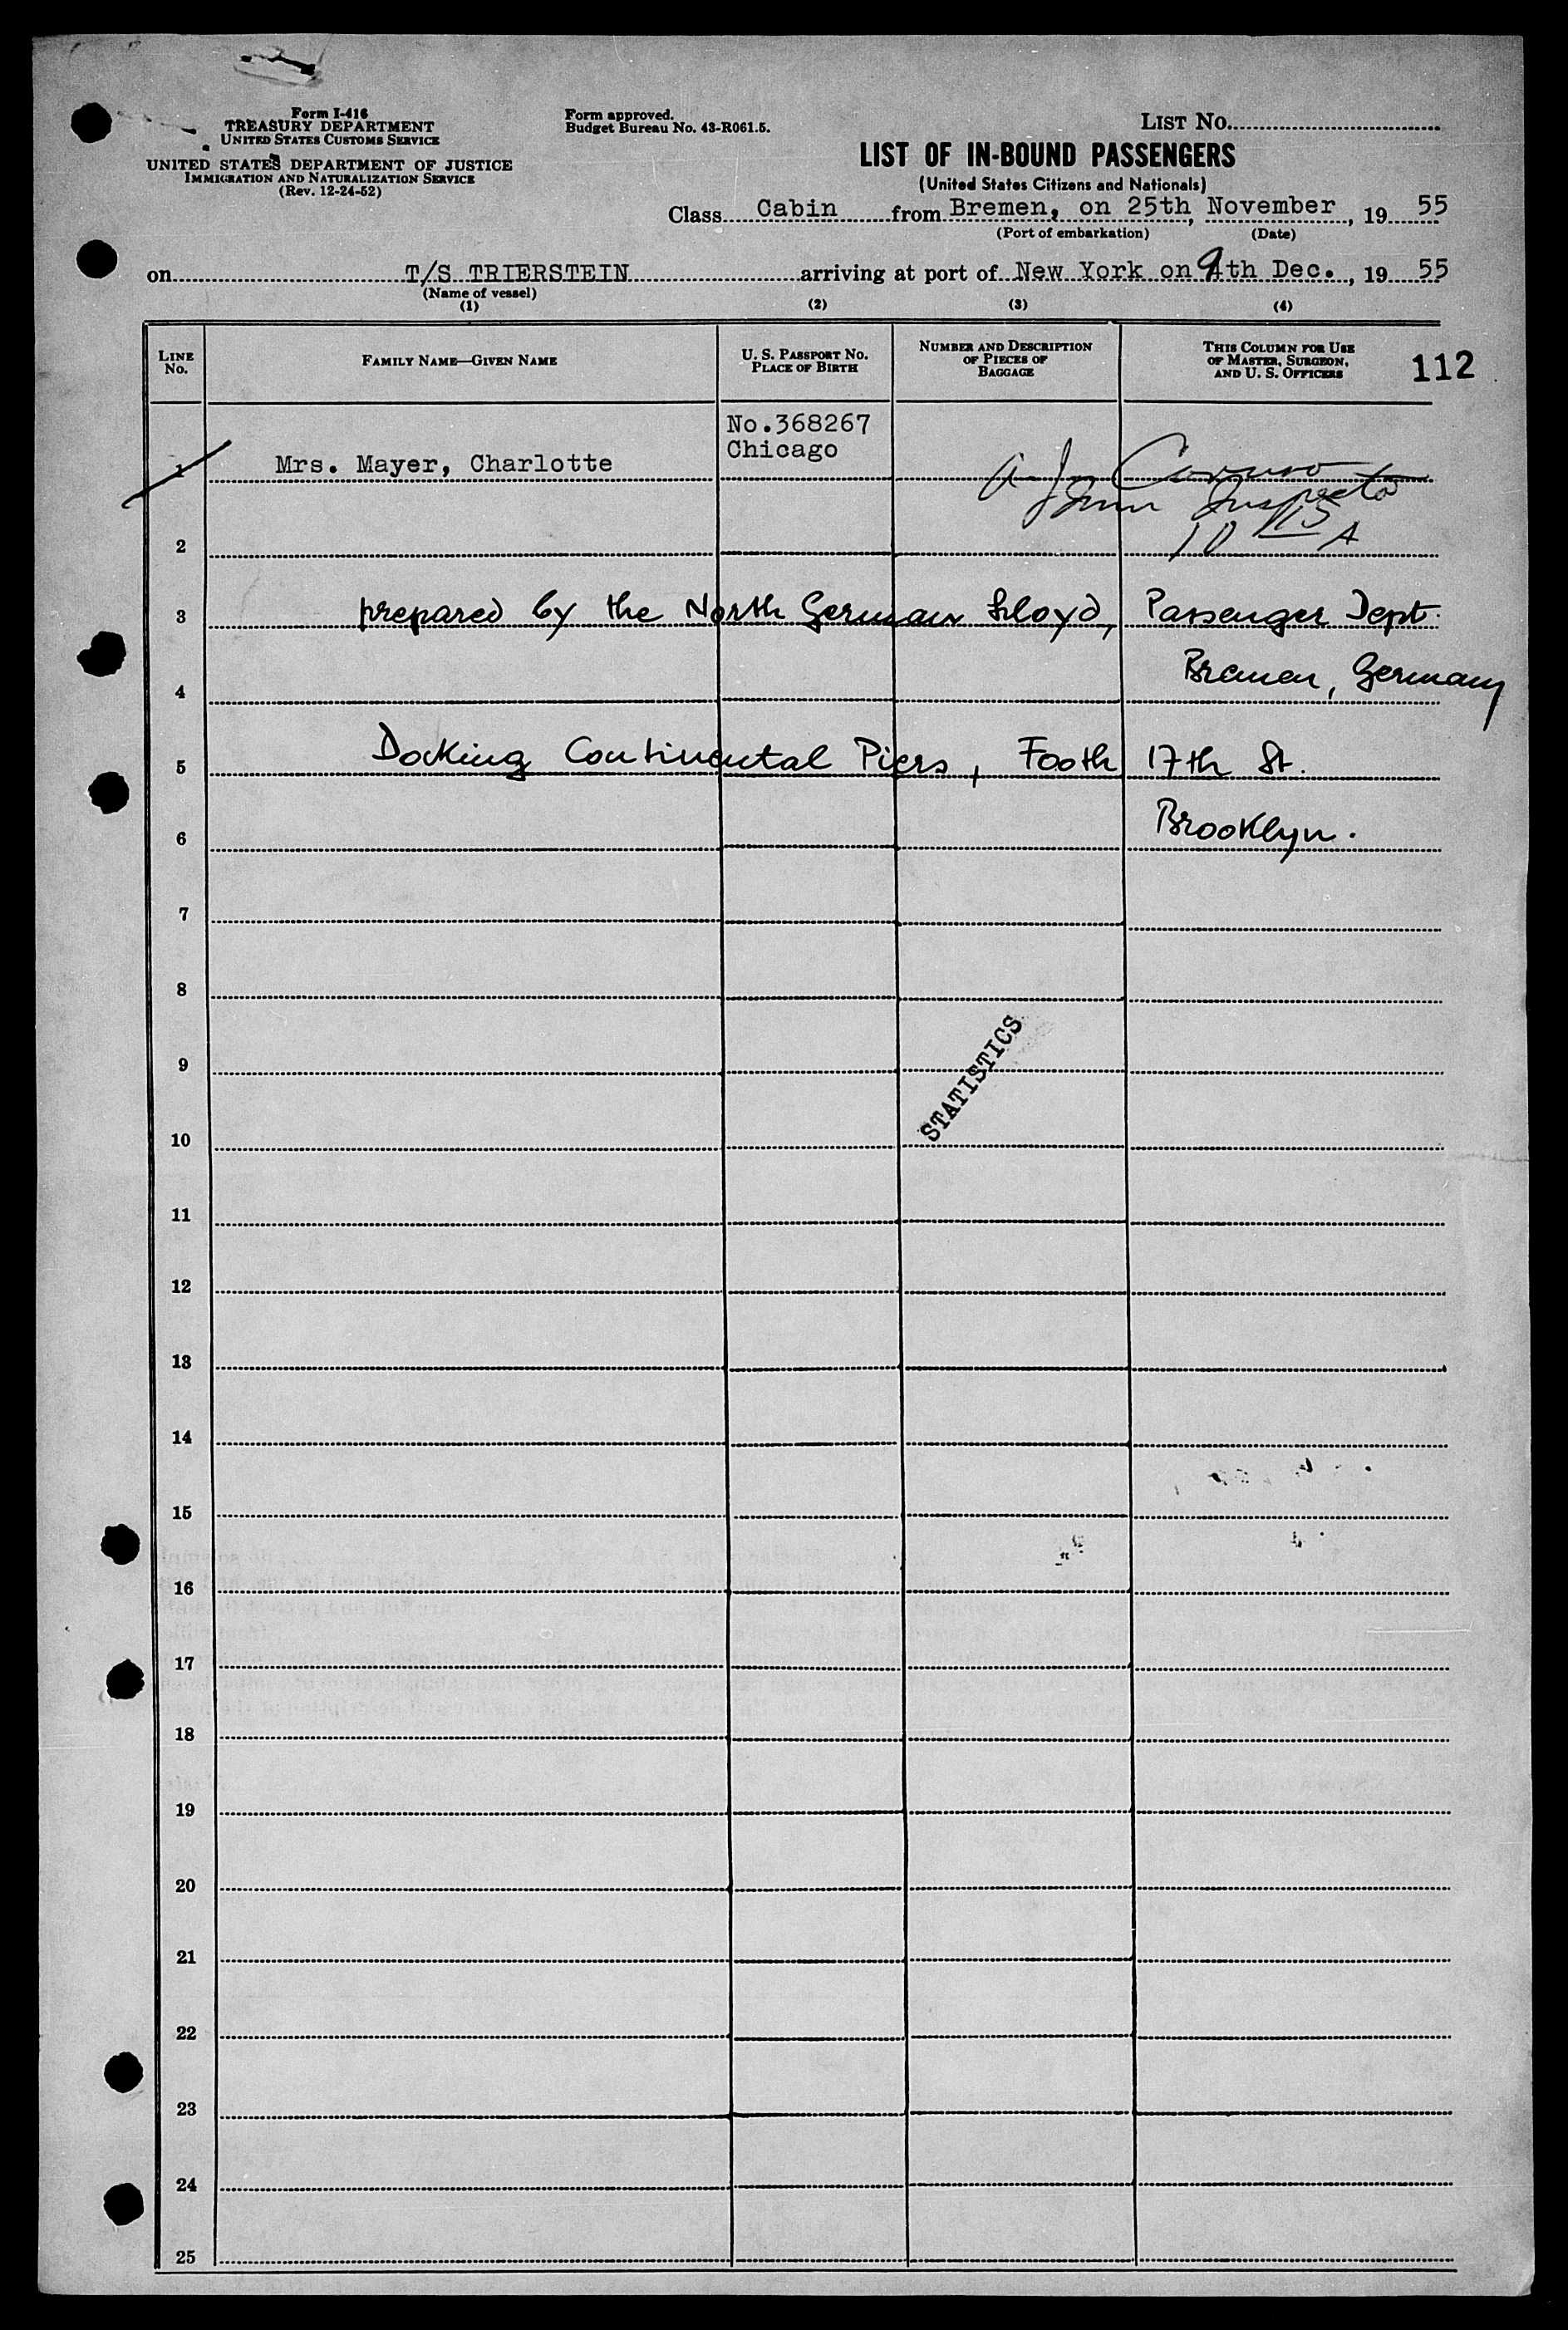 Form I-416
TREASURY DEPARTMENT
UNITED STATES CUSTOMS SERVICE
UNITED STATES DEPARTMENT OF JUSTICE
IMMIGRATION AND NATURALIZATION SERVICE
(Rev. 12-24-52)
Form approved.
Budget Bureau No. 43-R061.5.
LIST No.
LIST OF IN-BOUND PASSENGERS
(United States Citizens and Nationals)
Class Cabin from Bremen, on 25th, November, 19 55
(Port of embarkation) (Date)
on T/S TRIERSTEIN arriving at port of New York on 9th Dec., 19 55
(Name of vessel)
(1) (2) (3) (4)
LINE No. FAMILY NAME—GIVEN NAME U. S. PASSPORT No. PLACE OF BIRTH NUMBER AND DESCRIPTION OF PIECES OF BAGGAGE THIS COLUMN FOR USE OF MASTER, SURGEON, AND U. S. OFFICERS 112
No.368267
1 Mrs. Mayer, Charlotte Chicago
Inspector
2 10 15 A
3 prepared by the North German Lloyd, Passenger Dept.
4 Bremen, Germany
5 Docking Continental Piers, Footh 17th St.
6 Brooklyn.
7
8
9
STATISTICS
10
11
12
13
14
15
16
17
18
19
20
21
22
23
24
25